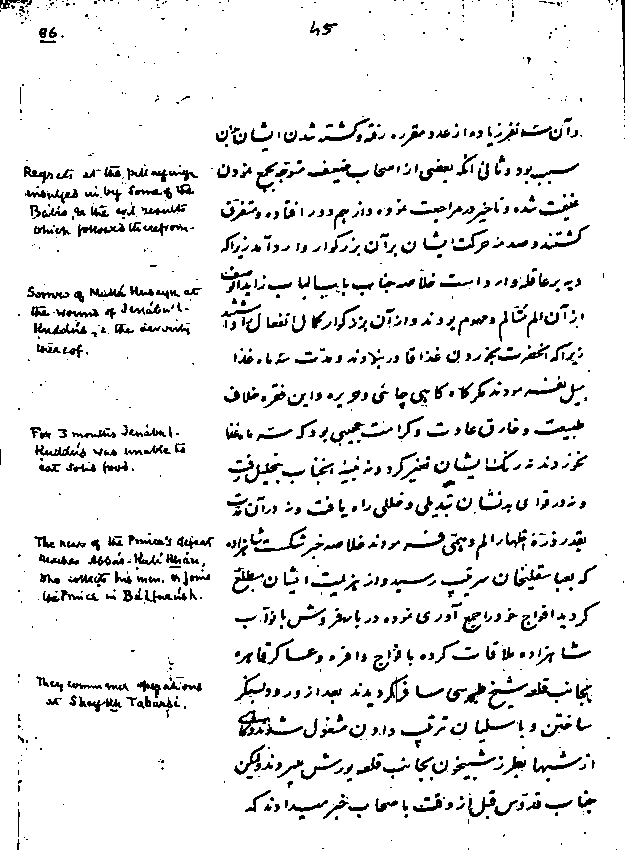 86.
۴۵
Regrets at the pillaging
indulged in by some of the
Babis, & the evil results
which followed therefrom.
Sorrow of Mullá Husayn at
the wound of Jenáb-i-
Kuddús, & the severity
thereof.
For 3 months Jenáb-i-
Kuddús was unable to
eat solid food.
The news of the Prince's defeat
reaches Abbás-Kulí Khán,
who collects his men & joins
the Prince in Bárfurúsh.
They commence operations
at Sheykh Tabarsí.
و آن نفر زیاده از عدد مقرره رفته و کشته شدن ایشان
سبب بود و ثانی آنکه بعضی از اصحاب ضعیف متوجه جمع نمودن
غنیمت شده و تاخیر در مراجعت نموده و از هم دور افتاده و متفرق
گشتند و صدمه حرکت ایشان بر آن بزرگوار وارد آمد زیرا که
دیه بر عاقله وارد است خلاصه جناب باب الباب زاید الوصف
از آن الم متالم و مهموم بودند و از آن بزرگوار کمال انفعال را داشتند
زیرا که آنحضرت بخوردن غذا قادر نبودند و مدت سه ماه غذا
میل نفرمودند مگر گاه گاهی چائی و حریره و این فقره خلاف
طبیعت و خارق عادت و کرامت عجیبی بود که سه ماه غذا
نخوردند نه رنگ ایشان تغییر کرد و نه بنیه آنجناب بتحلیل رفت
و نه در قوای بدنشان تبدیلی و خللی راه یافت و نه در آن مدت
بقدر ذره اظهار الم و همی فرمودند خلاصه خبر شکست شاهزاده
که بعباسقلیخان سرتیپ رسید و از هزیمت ایشان مطلع
گردید افواج خود را جمع آوری نموده در بارفروش با نواب
شاهزاده ملاقات کرده با افواج وافره و عساکر قاهره
بجانب قلعه شیخ طبرسی مسافر گردیدند بعد از ورود سنگر
ساختن و باسلیان ترتیب دادن مشغول شدند و گاهی
از شبها بطرز شبیخون بجانب قلعه یورش میبردند ولیکن
جناب قدوس قبل از وقت باصحاب خبر میدادند که